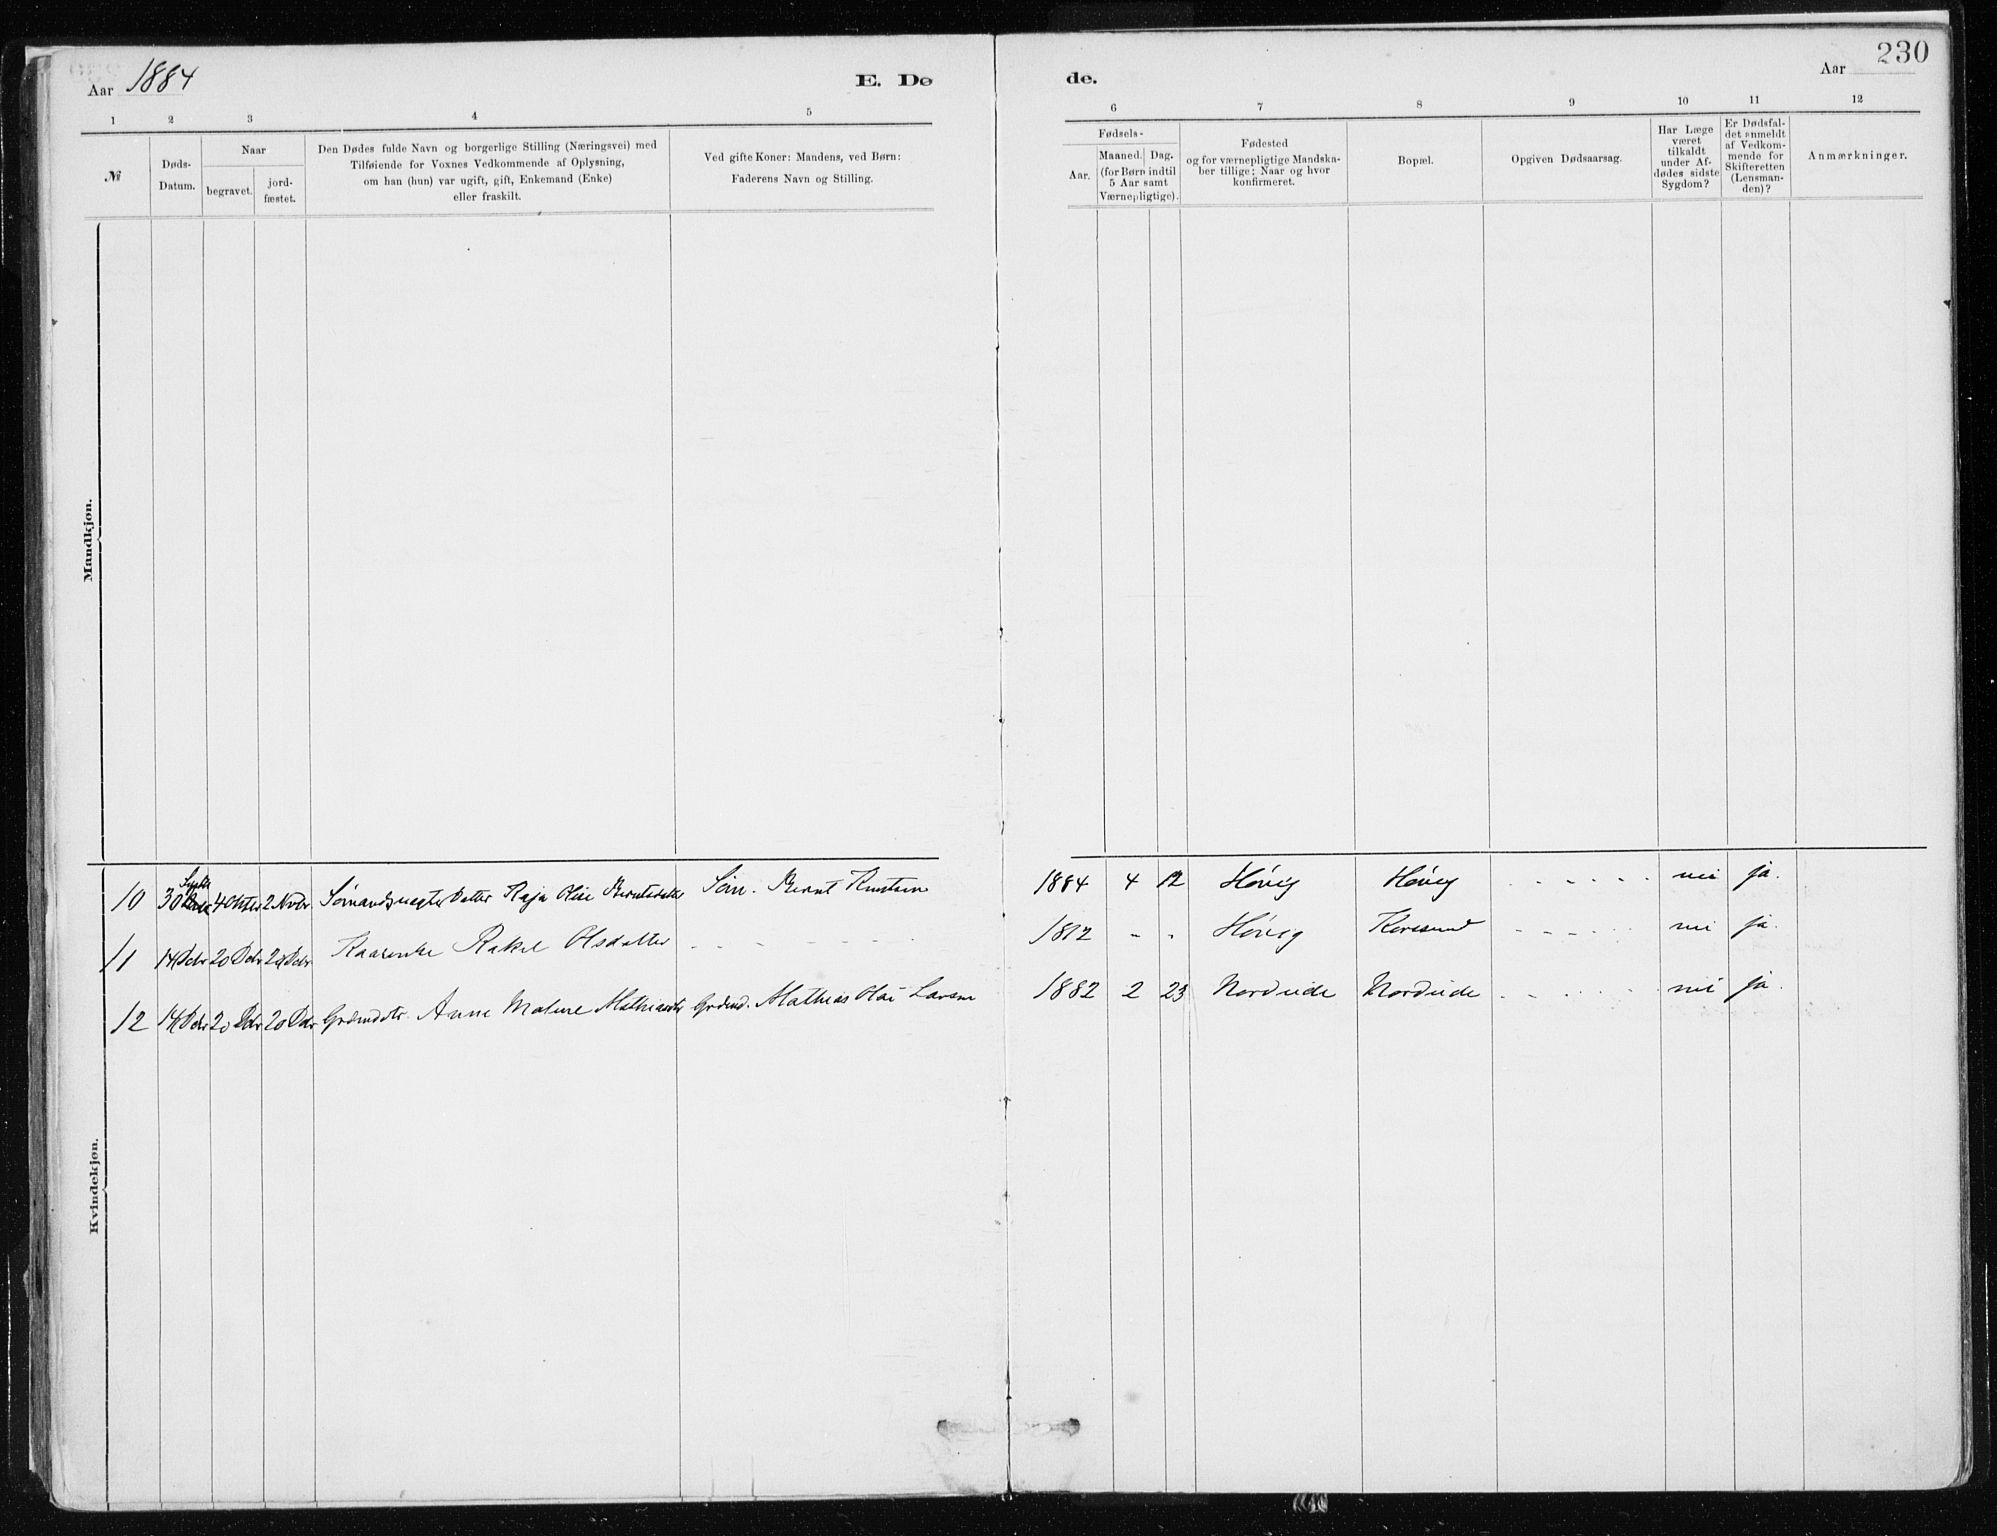 Aar 1884
E. Dø
de.
Aar
230
1 2 3 4 5
6 7 8 9 10 11 12
№
Døds-
Datum.
Naar
begravet.
jord-
fæstet.
Den Dødes fulde Navn og borgerlige Stilling (Næringsvei) med
Tilføiende for Voxnes Vedkommende af Oplysning,
om han (hun) var ugift, gift, Enkemand (Enke)
eller fraskilt.
Ved gifte Koner: Mandens, ved Børn:
Faderens Navn og Stilling.
Fødsels-
Aar.
Maaned. Dag.
(for Børn indtil
5 Aar samt
Værnepligtige).
Fødested
og for værnepligtige Mandska-
ber tillige: Naar og hvor
konfirmeret.
Bopæl.
Opgiven Dødsaarsag.
Har Læge
været
tilkaldt
under Af-
dødes sidste
Sygdom?
Er Dødsfal-
det anmeldt
af Vedkom-
mende for
Skifteretten
(Lensman-
den)?
Anmærkninger.
Mandkjøn.
Kvindekjøn.
10 30 4 Okter 2 Novbr. Datter Olsdatter Bernt Knutsen 1884 4 12 Høvig Høvig - - - - - - nei ja.
11 14 Dcbr 20 Dcbr 20 Dcbr Rakel Olsdatter - - - - - - 1812 - - Høvig - - - - - nei ja.
12 14 Dcbr 20 Dcbr 20 Dcbr Anne Grdmd. Mathias Larsen 1882 2 23 Nordvide Nordvide - - - - - nei ja.